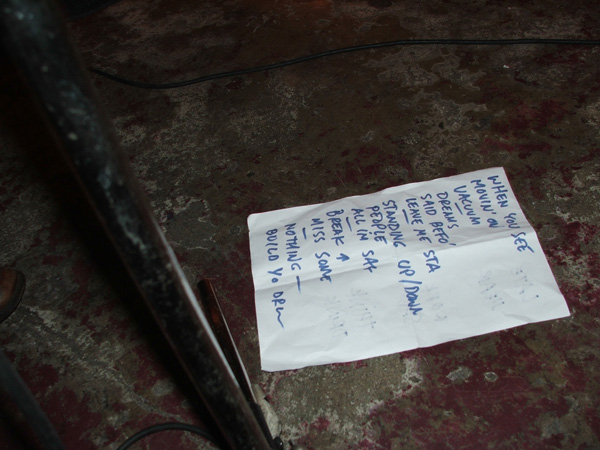 WHEN YOU SEE
MOVIN' ON
VACUUM
DREAMS
SAID BEFO,
LEAVE ME STA
STANDING UP/DOWN
PEOPLE
ALL IN SAX
BREAK ↑
MISS SOME
NOTHING —
BUILD YO DRM